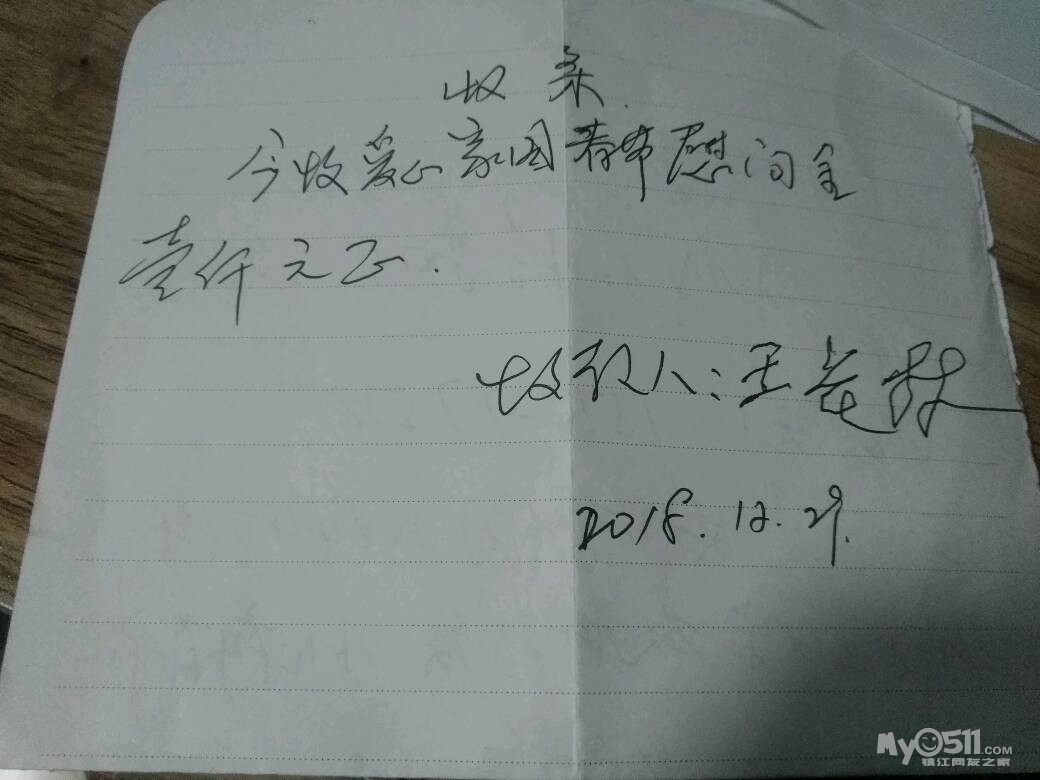 收条.
今收爱心家园春节慰问金
壹仟元正.
收款人:王
2018.12.29.
My0511.COM
镇江网友之家